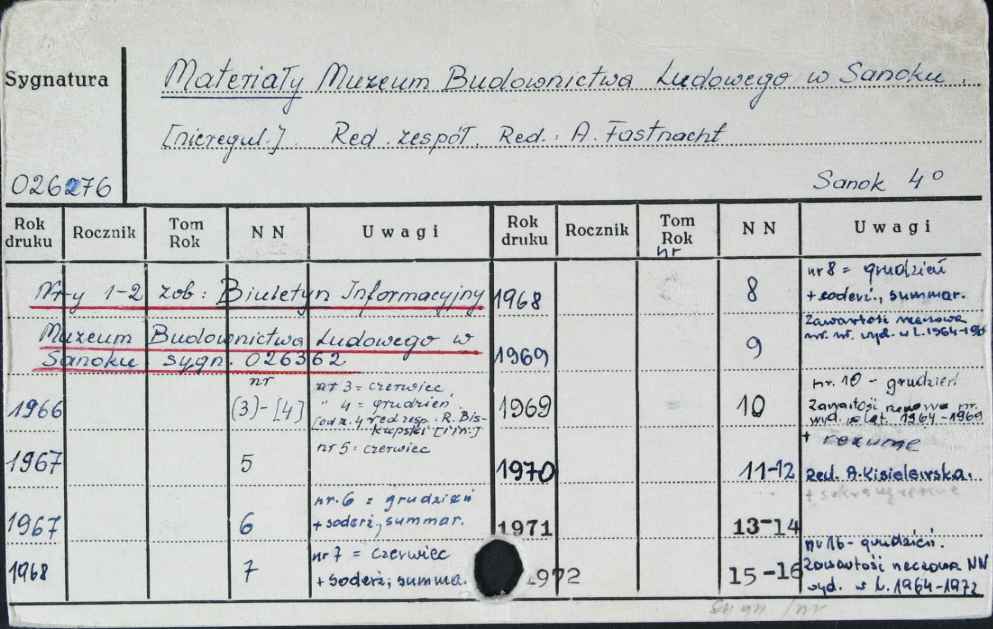 Sygnatura
Materiały Muzeum Budownictwa Ludowego w Sanoku.
[nieregul.]. Red. zespół. Red.: A. Fastnacht
026276
Sanok 4°
Rok druku Rocznik Tom Rok NN Uwagi Rok druku Rocznik Tom Rok NN Uwagi
nr
Nr-y 1-2 zob: Biuletyn Informacyjny
Muzeum Budownictwa Ludowego w
Sanoku sygn. 026362
nr
1966 (3)-[4] nr 3 = czerwiec,
" 4 = grudzień.
[od z. 4 red. zesp. R. Bis-
kupski [i in.]
1967 5 nr 5 = czerwiec
1967 6 nr. 6 = grudzień
+ soderż, summar.
1968 7 nr 7 = czerwiec
+ soderż, summa.
1968 8 nr 8 = grudzień
+ soderż., summar.
1969 9 Zawartości
nr. nr. wyd. w l. 1964-
1969 10 nr. 10 - grudzień
nr.
wyd. 1964-1969
+ rezume
1970 11-12 Red. A. Kisielewska.
1971 13-14
1972 15-16 nr 16 - grudzień.
Zawartości NN
wyd. w l. 1964-1972